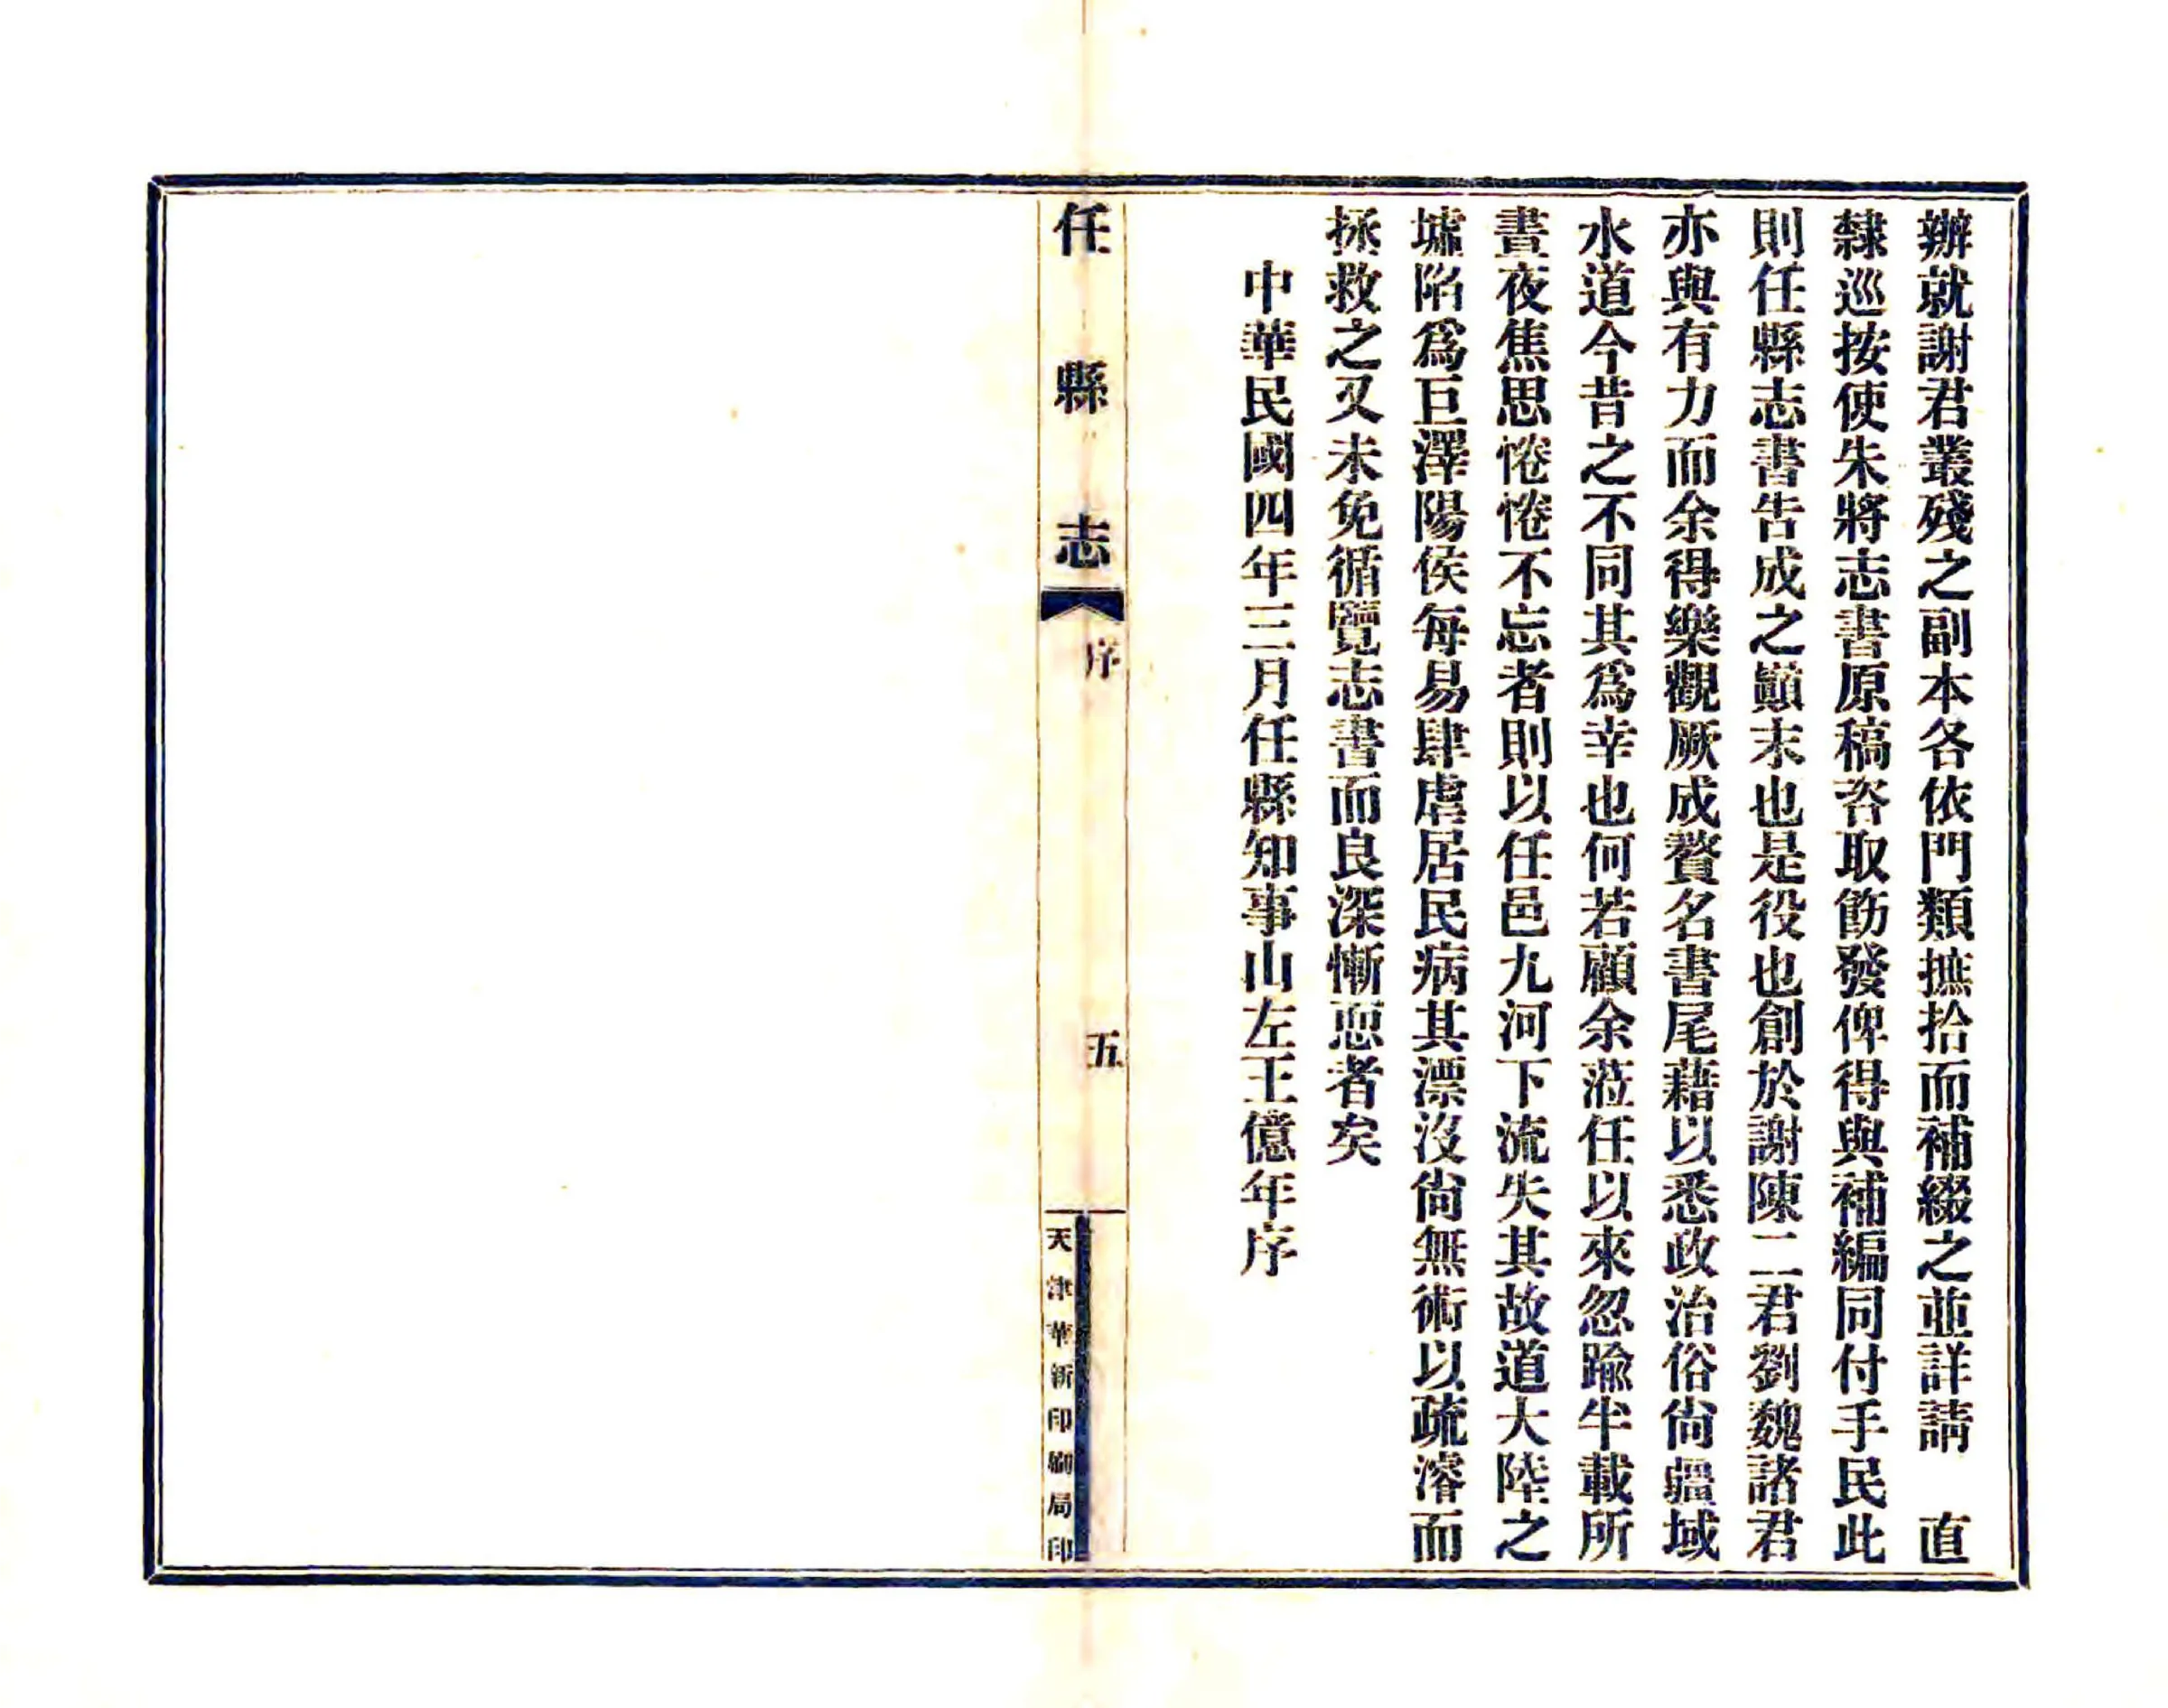 辦就謝君叢殘之副本各依門類摭拾而補綴之並詳請　直
隸巡按使朱將志書原稿咨取飭發俾得與補編同付手民此
則任縣志書告成之顚末也是役也創於謝陳二君劉魏諸君
亦與有力而余得樂觀厥成贅名書尾藉以悉政治俗尙疆域
水道今昔之不同其爲幸也何若顧余蒞任以來忽踰半載所
晝夜焦思惓惓不忘者則以任邑九河下流失其故道大陸之
墟陷爲巨澤陽侯每易肆虐居民病其漂沒尙無術以疏濬而
拯救之又未免循覽志書而良深慚恧者矣
中華民國四年三月任縣知事山左王億年序
任縣志
序
五
天津華新印刷局印